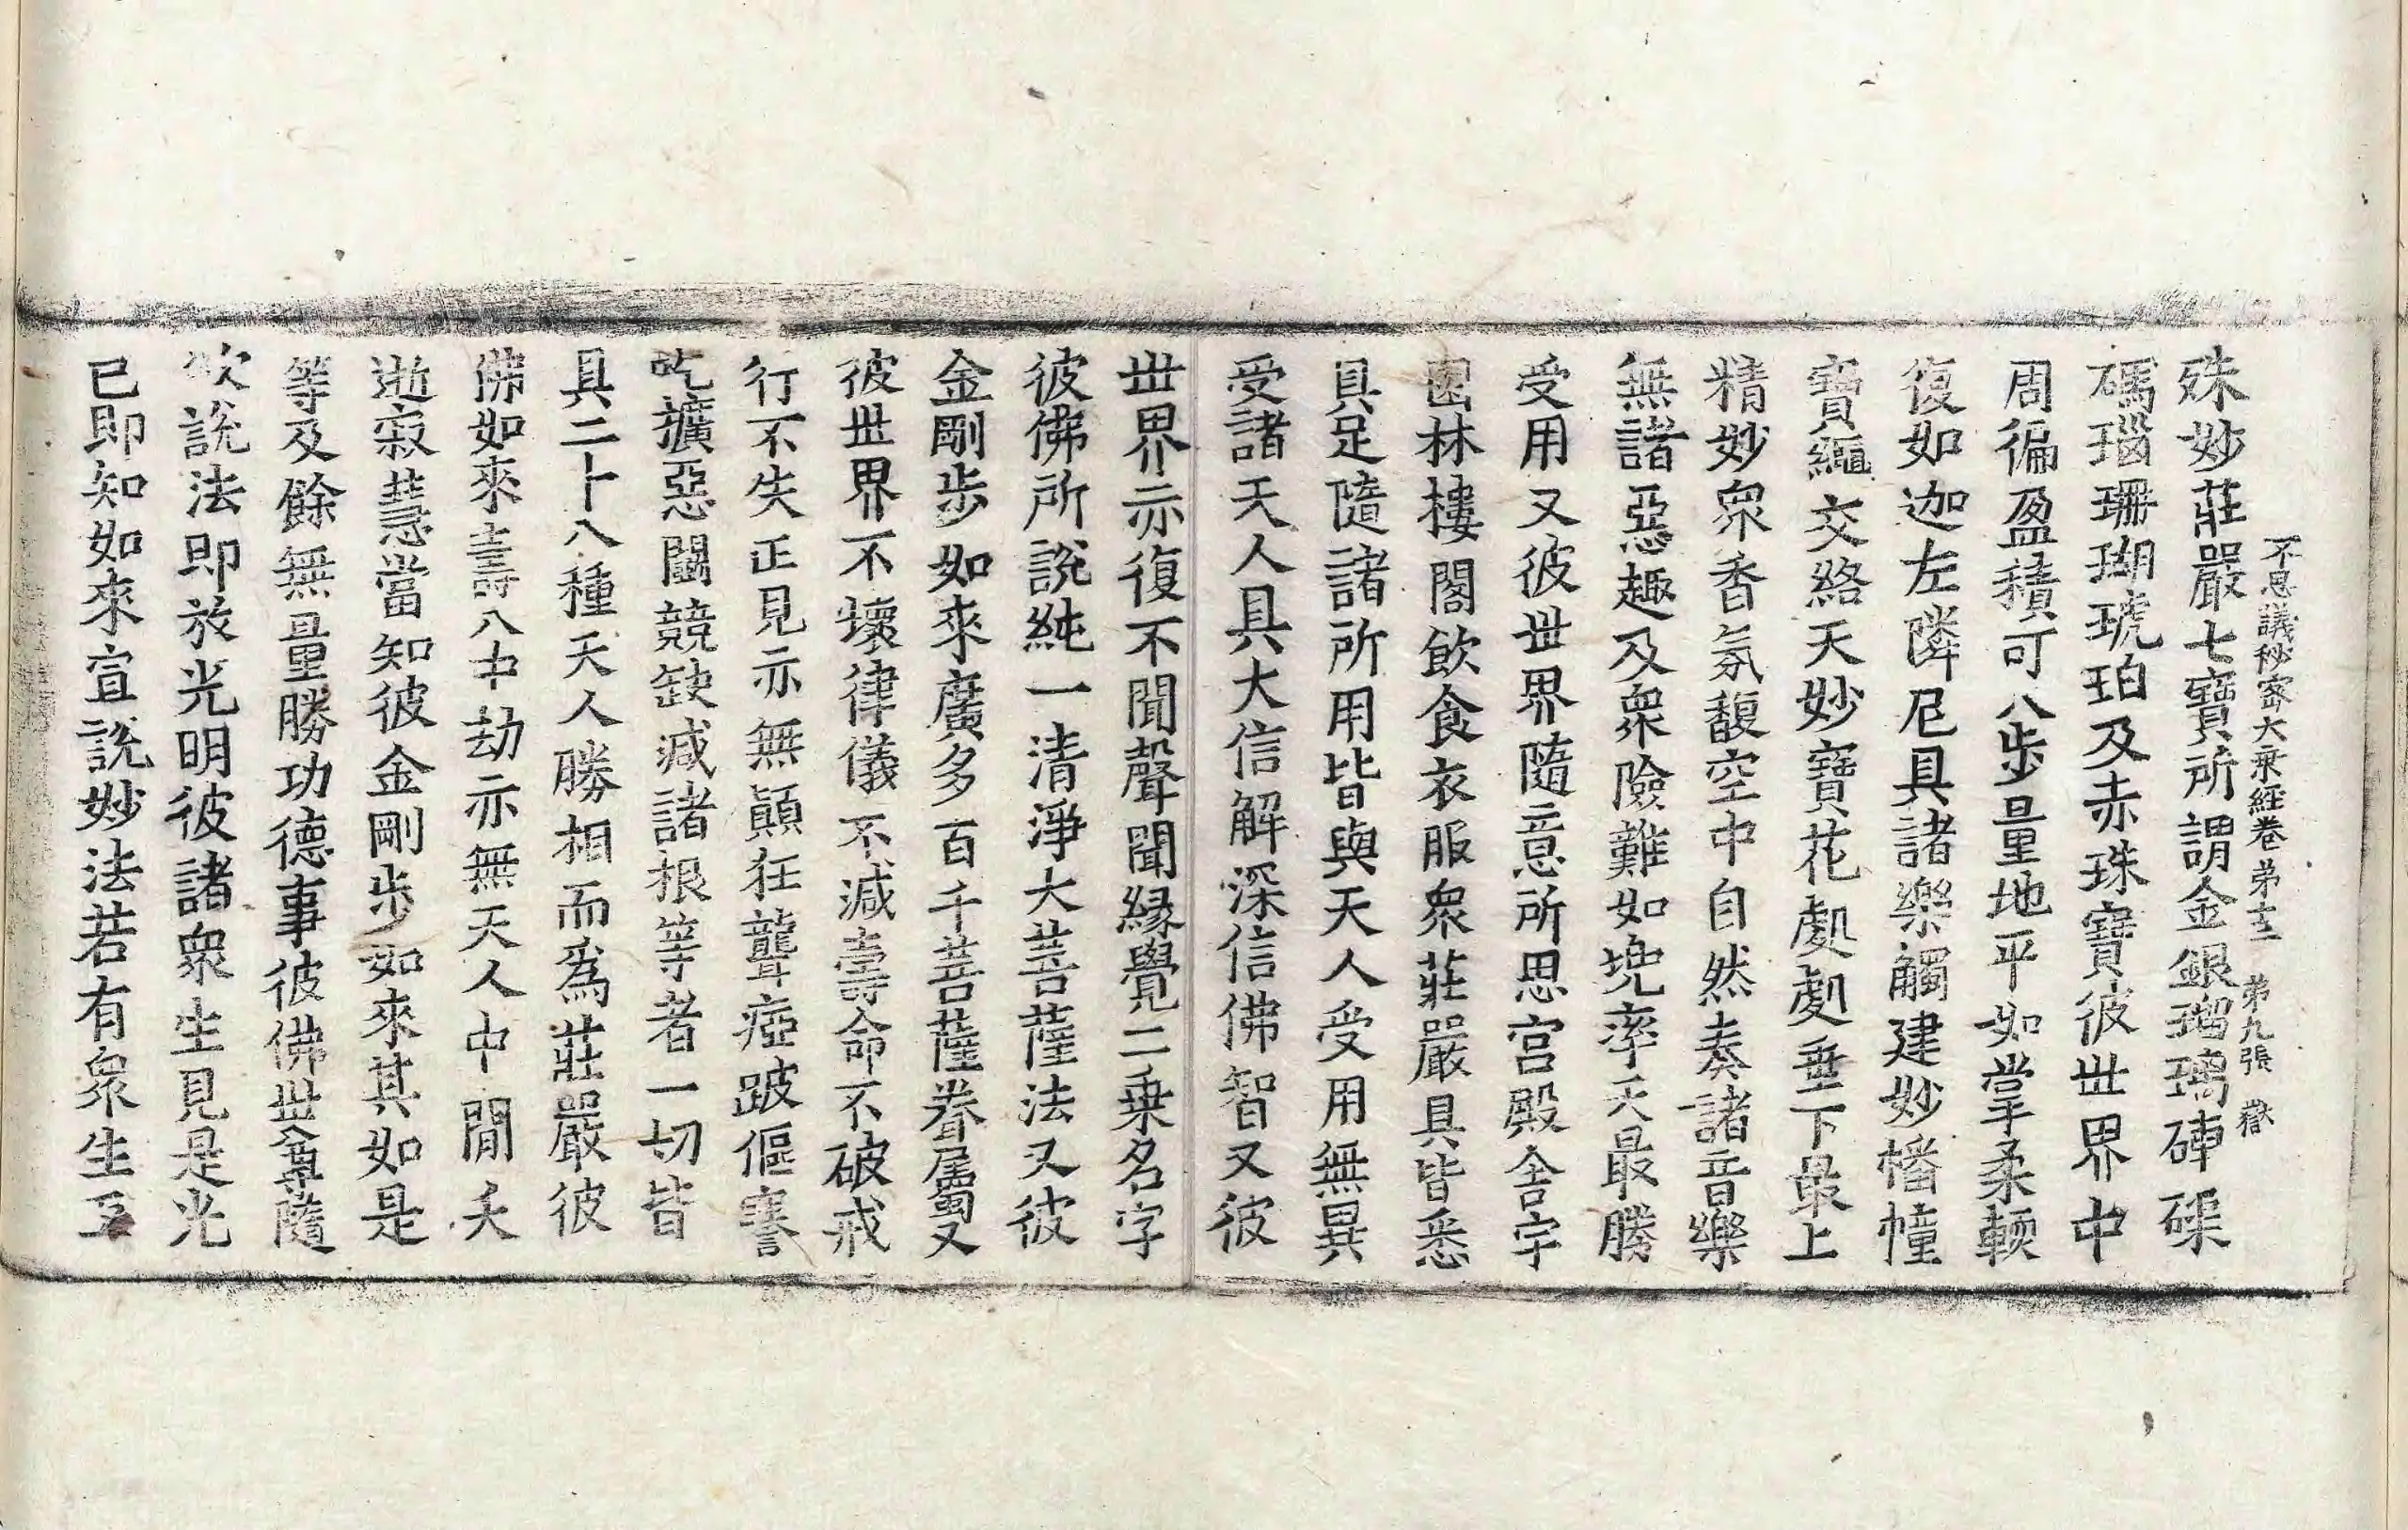 不思議秘密大乗經卷第十二　第九張　嶽
殊妙莊嚴七寶所謂金銀瑠璃硨磲
碼瑙珊瑚琥珀及赤珠寶彼世界中
周徧盈積可八步量地平如掌柔輭
復如迦左隣尼具諸樂觸建妙幡幢
寶繩交絡天妙寶花處處垂下最上
精妙衆香氛馥空中自然奏諸音樂
無諸惡趣及衆險難如兜率天最勝
受用又彼世界隨意所思宮殿舍宇
園林樓閣飲食衣服衆莊嚴具皆悉
具足隨諸所用皆與天人受用無異
受諸天人具大信解深信佛智又彼
世界亦復不聞聲聞緣覺二乗名字
彼佛所說純一清淨大菩薩法又彼
金剛步如來廣多百千菩薩眷屬又
彼世界不壞律儀不減壽命不破戒
行不失正見亦無顛狂聾瘂跛傴謇
吃擴惡鬪競缺減諸根等者一切皆
具二十八種天人勝相而爲莊嚴彼
佛如來壽八中劫亦無天人中閒夭
逝寂慧當知彼金剛步如來其如是
等及餘無量勝功德事彼佛世尊隨
次說法即放光明彼諸衆生見是光
已即知如來宣說妙法若有衆生互